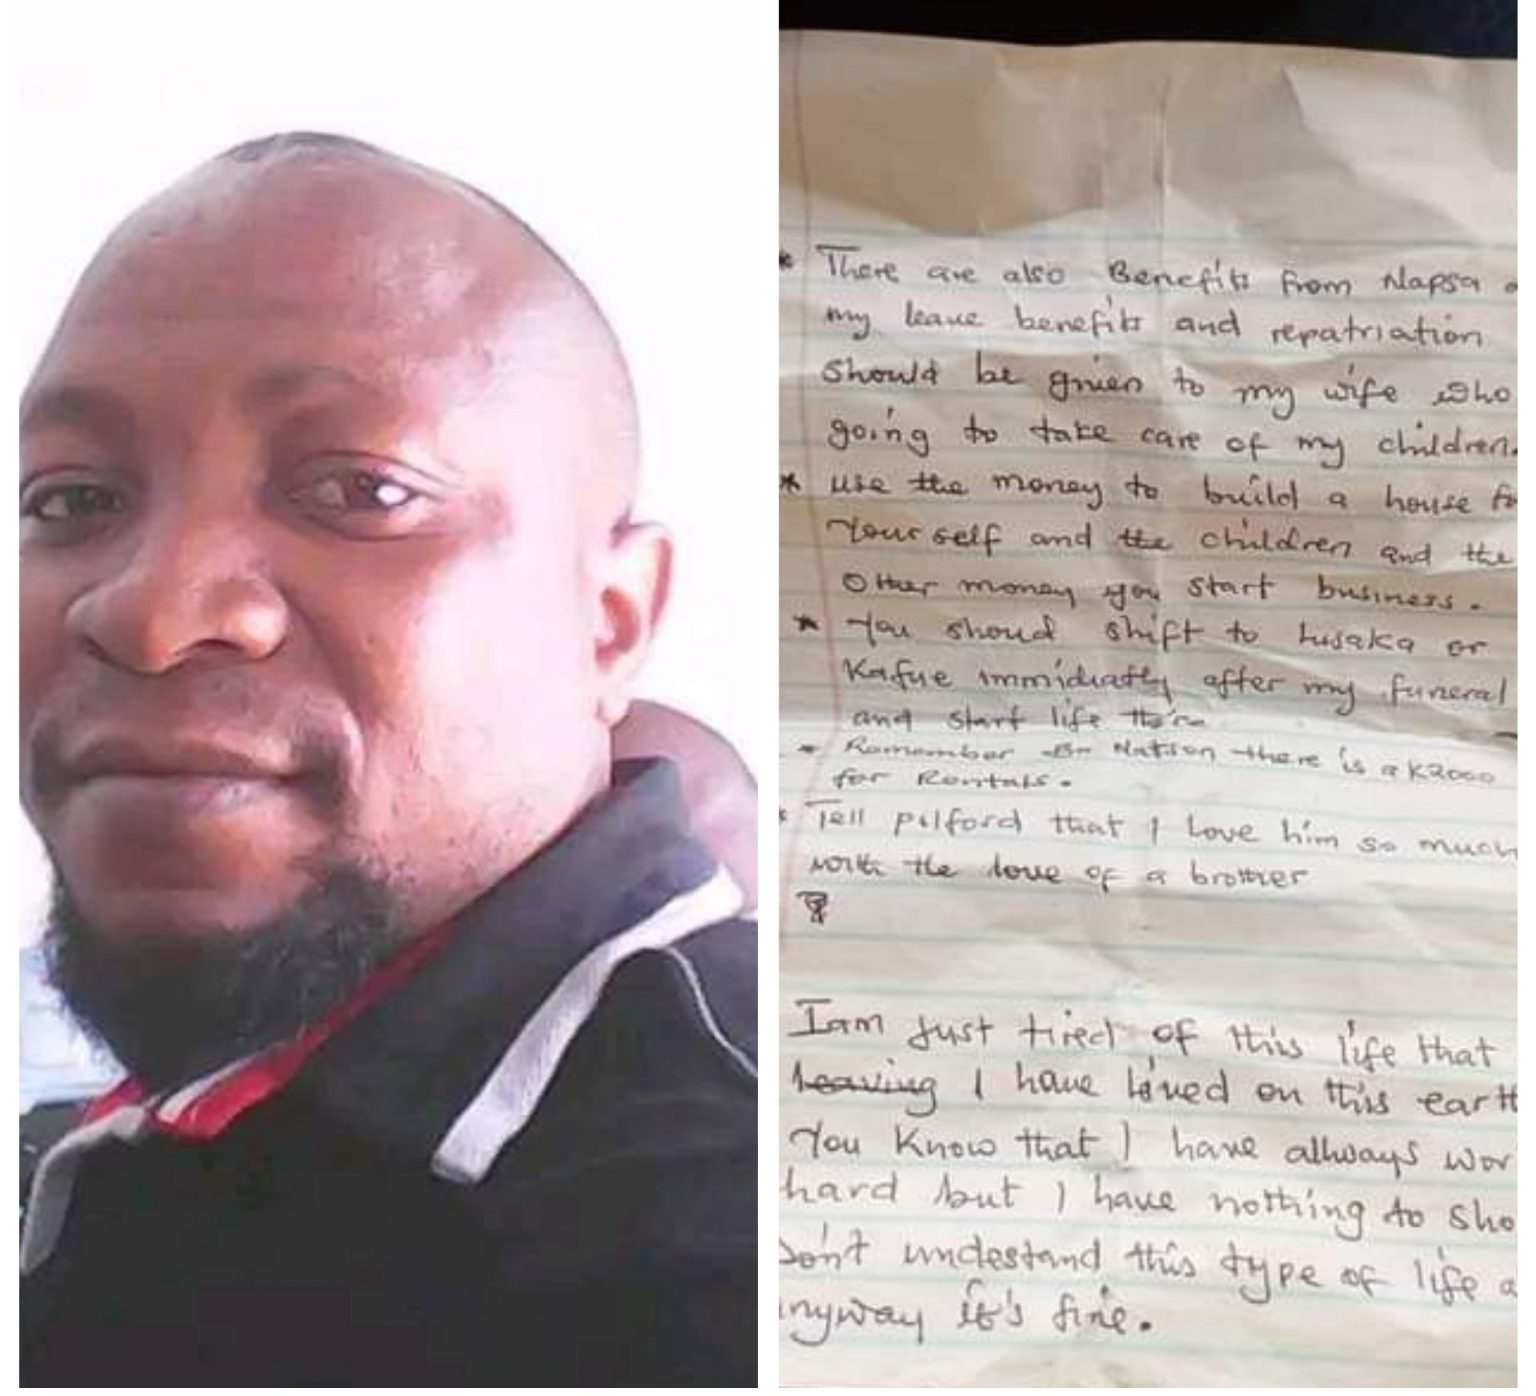 * There are also Benefits from Napsa
my leave benefits and repatriation
should be given to my wife who
going to take care of my children.
* use the money to build a house fo
Your self and the children and the
other money you start business.
* You shoud shift to Lusaka or
Kafue immidiatly after my funeral
and start life there
* Remember Br Natson there is a K2000
for Rentals.
* Tell pilford that I Love him so much
with the love of a brother
I am Just tired of this life that
leaving I have lived on this earth
You Know that I have allways wor
hard but I have nothing to sho
Don't undestand this type of life a
nyway it's fine.